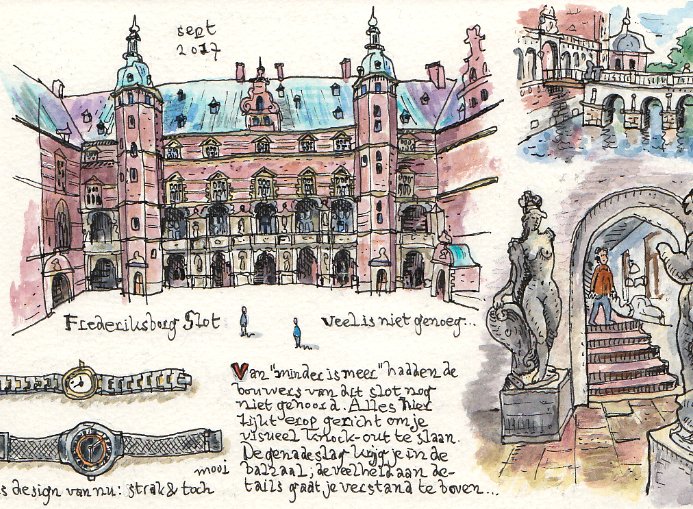 sept
2017
Frederiksborg Slot
veel is niet genoeg...
Van "minder is meer" hadden de
bouwers van dit slot nog
niet gehoord. Alles hier
lijkt erop gericht om je
visueel knock-out te slaan.
De genadeslag krijg je in de
balzaal; de veelheid aan de-
tails gaat je verstand te boven...
mooi
design van nu: strak & toch